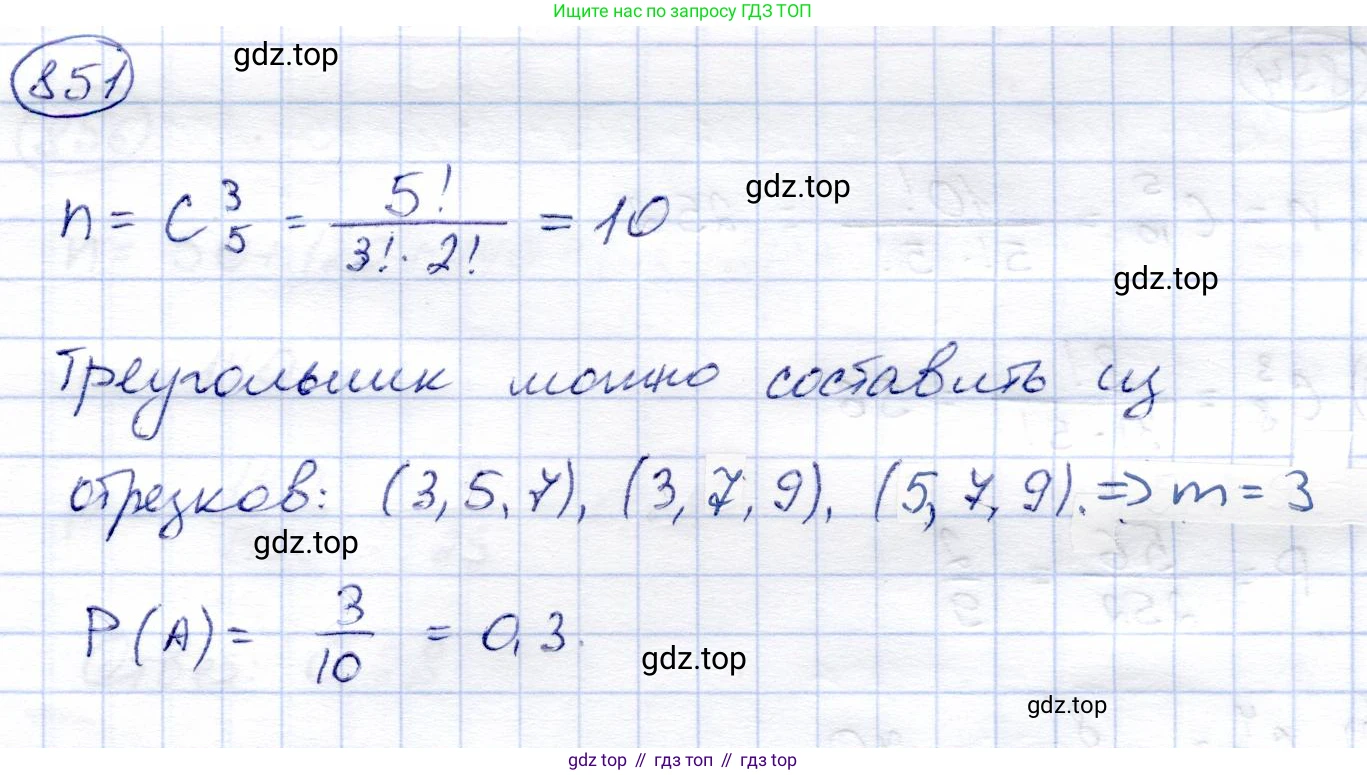 Ищите нас по запросу ГДЗ ТОП
851
gdz.top
n = C 3 5 = 5! / 3! · 2! = 10
gdz.top
gdz.top
Треугольник можно составить из
отрезков: (3, 5, 7), (3, 7, 9), (5, 7, 9). => m = 3
gdz.top
P(A) = 3/10 = 0,3.
gdz.top
gdz.top
gdz.top // гдз топ // гдз top